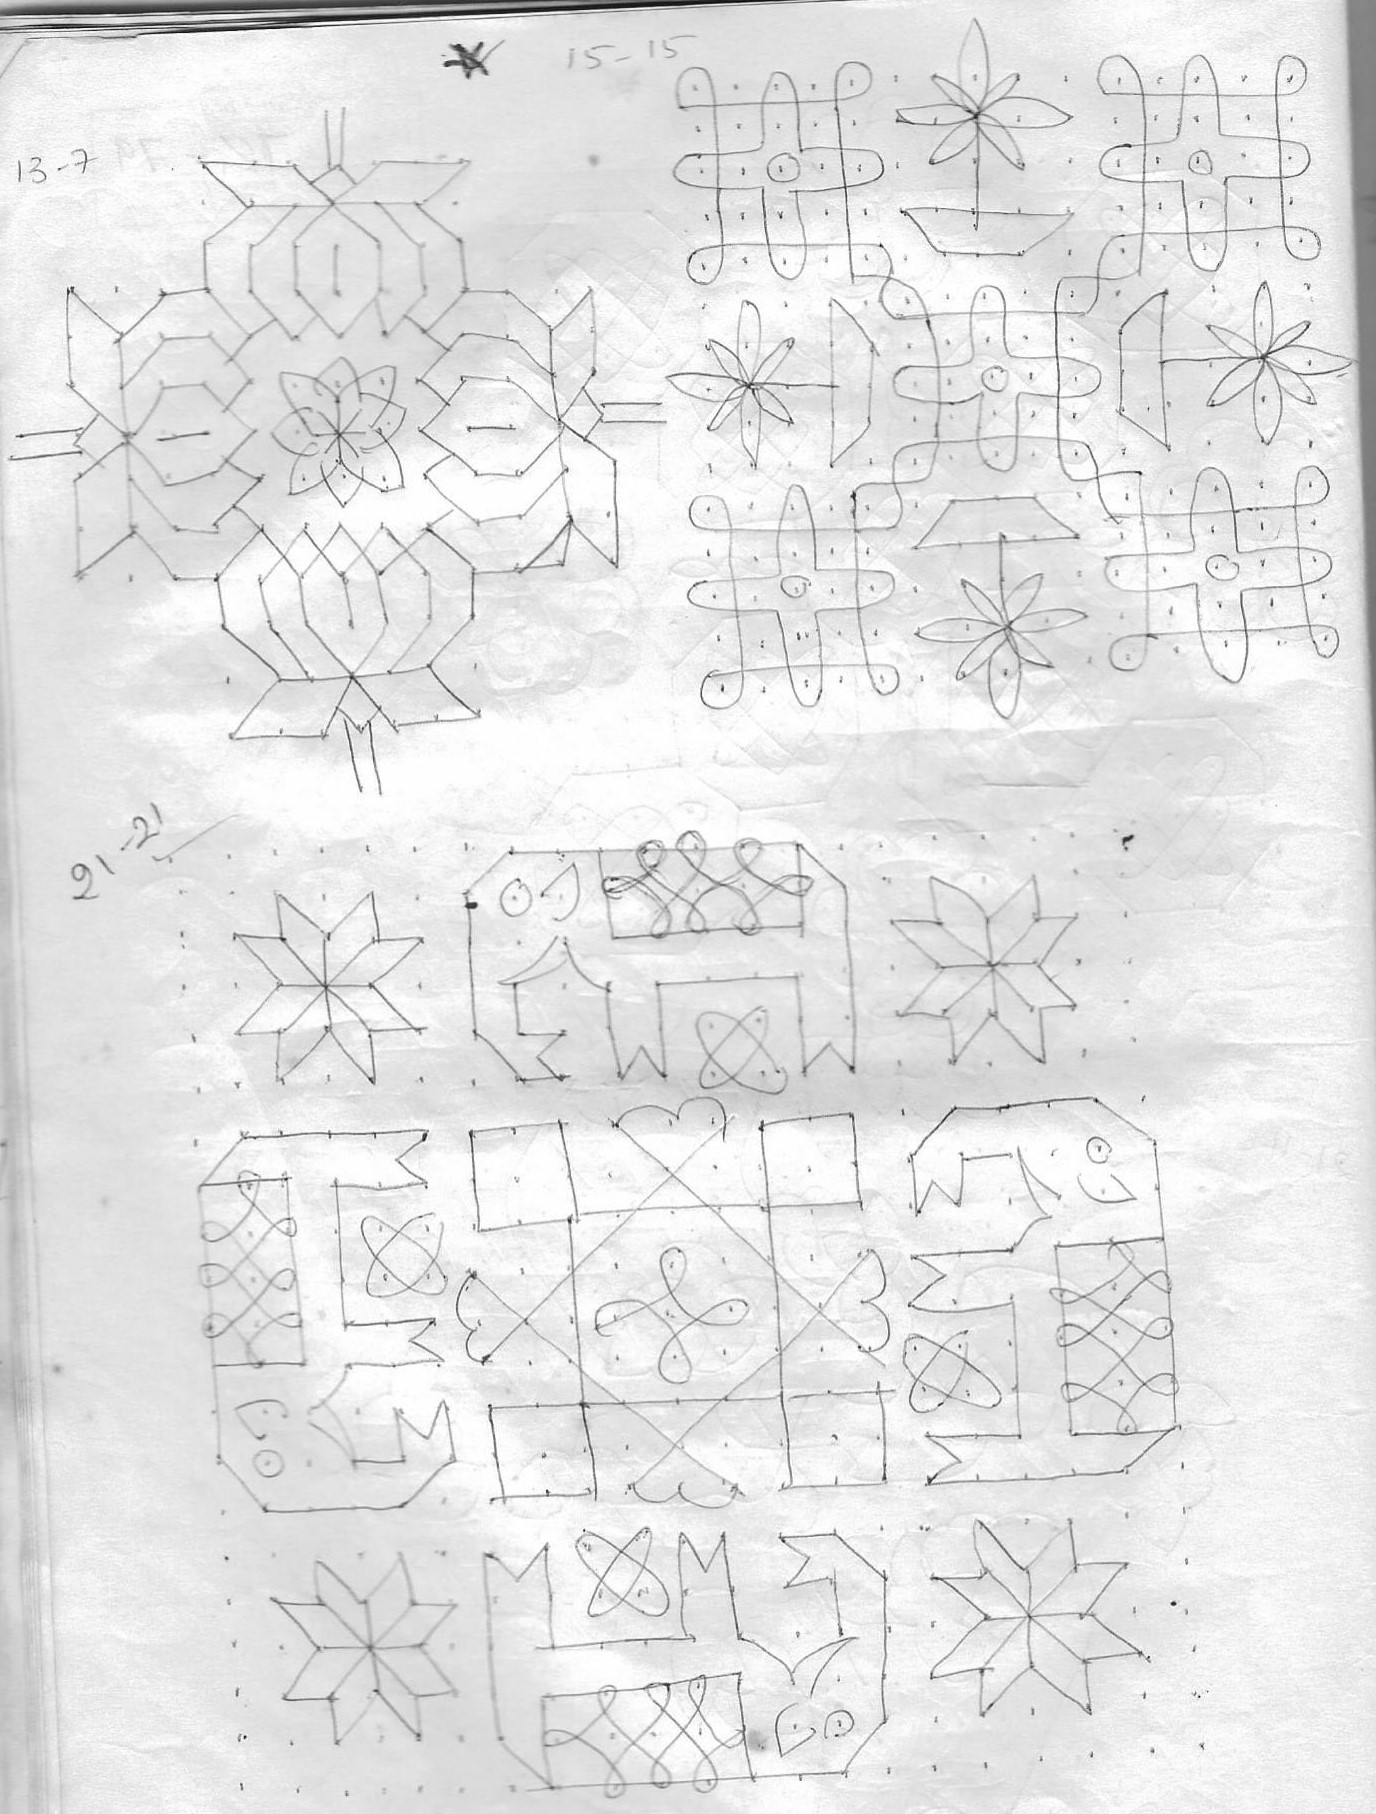 15-15
13-7
21-21